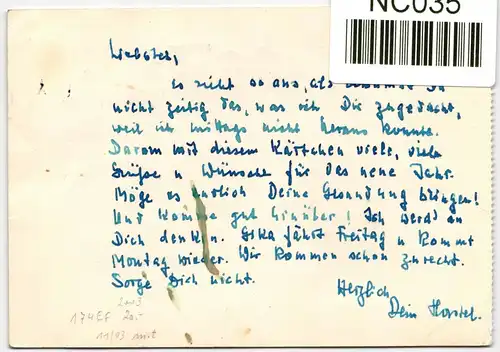 NC035
Liebster,
es sieht so aus, als bekämst Du
nicht zeitig das, was ich Dir zugedacht,
weil ich mittags nicht heraus konnte.
Darum mit diesem Kärtchen viele, viele
Grüße u Wünsche für das neue Jahr.
Möge es endlich Deine Gesundung bringen!
Und komme gut hinüber! Ich werd' an
Dich denken. Liska fährt Freitag u kommt
Montag wieder. Wir kommen schon zurecht.
Sorge Dich nicht.
Herzlich
Dein Horstel.
2003
174EF 20.-
11/93 mit